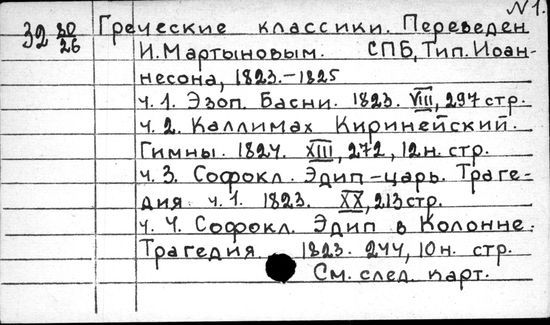 N 1.
32 20/26 Греческие классики. Переведен
И. Мартыновым. СПБ, Тип. Иоан-
несона, 1823.-1825
ч. 1. Эзоп. Басни. 1823. VIII, 297 стр.
ч. 2. Каллимах Киринейский.
Гимны. 1824. XIII, 272, 12н. стр.
ч. 3. Софокл. Эдип-царь. Траге-
дия ч. 1. 1823. XX, 213 стр.
ч. 4. Софокл. Эдип в Колонне.
Трагедия. 1823. 244, 10н. стр.
См. след. карт.